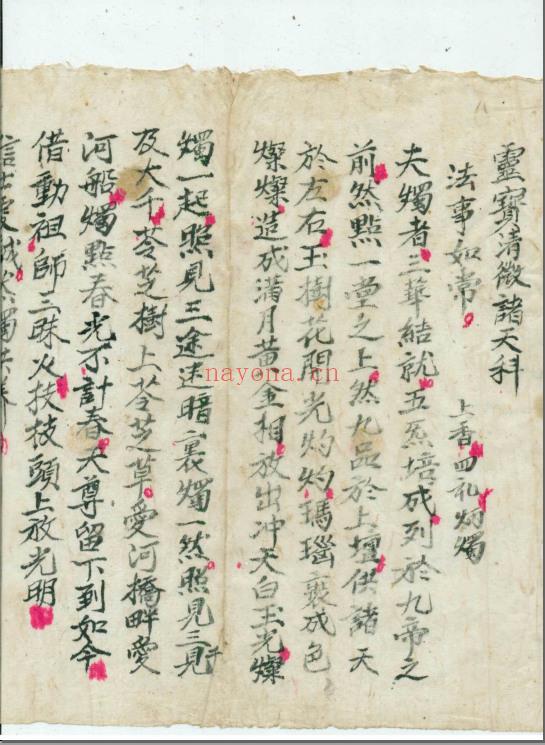 靈寶清微諸天科
法事如常。 上香四礼灼燭
夫燭者三華結就五炁培成列於九帝之
前然點一壇之上然九品於上壇供諸天
於左右玉樹花開光灼灼瑪瑙裝成色
燦燦造成滿月黃金相放出冲天白玉光燦
燭一起照見三途迷暗裏燭一然照見三千見
及大千苓芝樹上苓芝草愛河橋畔愛
河船燭點春光不計春天尊留下到如今
借動祖師三昧火技枝頭上放光明
信士
nayona.cn